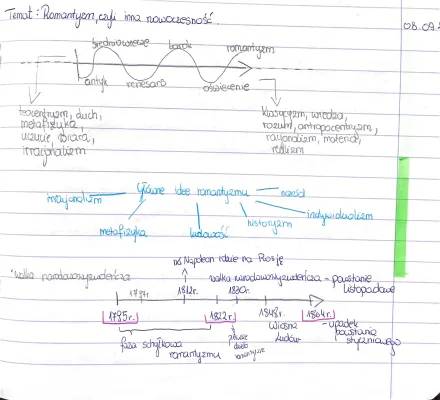 Temat: Romantyzm, czyli inna nowoczesność
08.09.
średniowiecze barok romantyzm
antyk renesans oświecenie
teocentryzm, duch,
metafizyka,
uczucie, wiara,
irracjonalizm
klasycyzm, wiedza,
rozum, antropocentryzm,
racjonalizm, materia,
realizm
Główne idee romantyzmu
irracjonalizm
naród
indywidualizm
historyzm
ludowość
metafizyka
Napoleon idzie na Rosję
walka narodowowyzwoleńcza
walka narodowowyzwoleńcza - powstanie
listopadowe
1812r. 1830r.
1795r. 1822r. 1848r. 1864r.
Wiosna
Ludów
- upadek
powstania
styczniowego
faza schyłkowa
romantyzmu